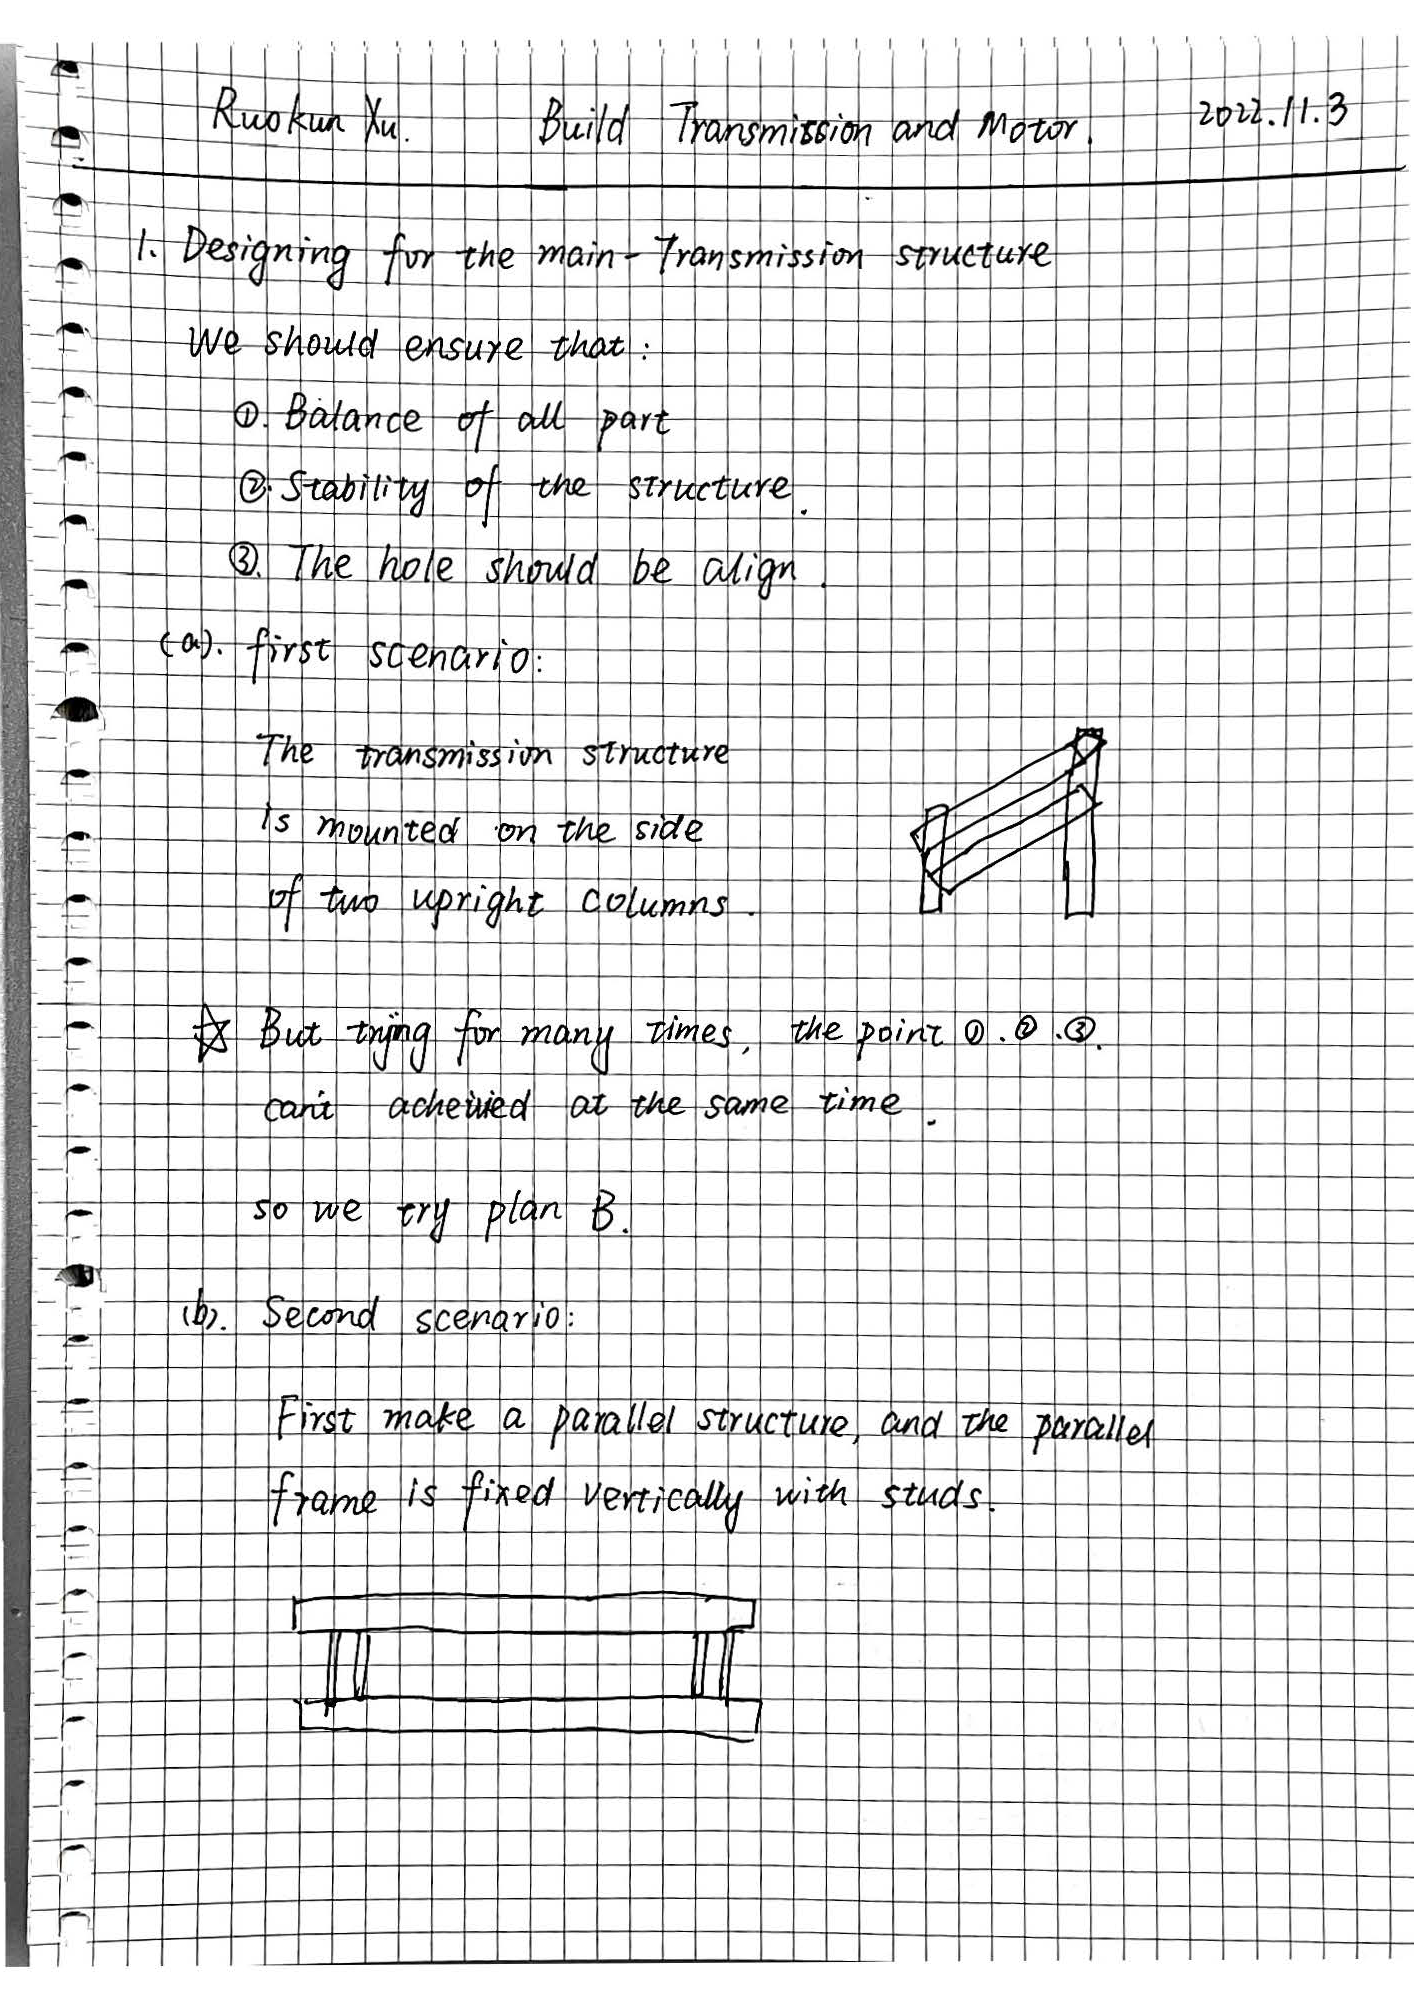 Ruokun Xu. Build Transmission and Motor. 2022.11.3
1. Designing for the main-Transmission structure
We should ensure that:
①. Balance of all part
②. Stability of the structure.
③. The hole should be align.
(a). first scenario:
The transmission structure
is mounted on the side
of two upright columns.
☆ But trying for many times, the point ①.②.③.
can't acheived at the same time.
so we try plan B.
(b). Second scenario:
First make a parallel structure, and the parallel
frame is fixed vertically with studs.